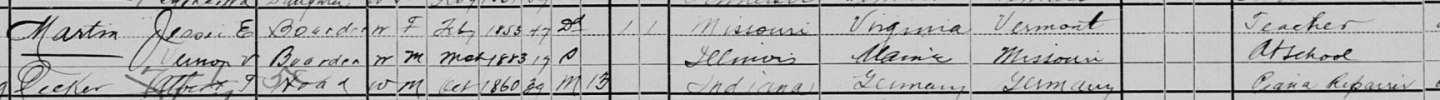 Martin Jessie E Boarder W F Feb 1853 47 Dd 1 1 Missouri Virginia Vermont Teacher
Vernon V Boarder W M Mch 1883 17 S Illinois Maine Missouri At School
Decker Albert F Head W M Oct 1860 39 M 13 Indiana Germany Germany Piano Repairer